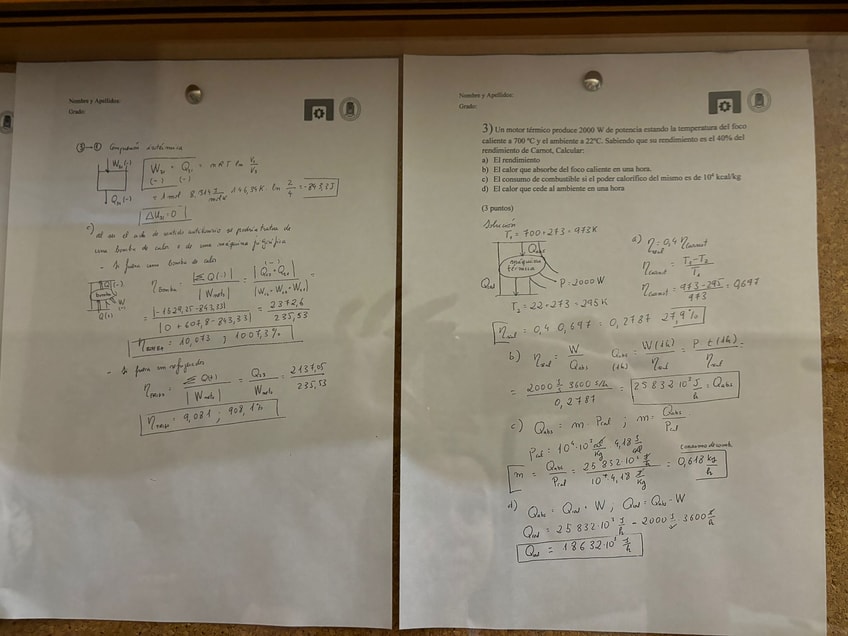 Nombre y Apellidos:
Grado:
Compresión isotérmica
W₃₁ (-)
W₃₁ = Q₃₁ = n R T ln V₁/V₃
(-) (-)
Q₃₁ (-)
ΔU₃₁ = 0
c)
una bomba de calor o de una máquina frigorífica
- Si fuera una bomba de calor
Q (-)
bomba
W (-)
Q(+)
η bomba = |Σ Q (-)| / |W neto| =
= |-1529,25 - 843,33| / |0 + 607,8 - 843,33| = 2372,6 / 235,53
- Si fuera un refrigerador
η = Σ Q(+) / |W neto| = Q₂₃ / W neto = 2137,05 / 235,53
= 9,081 ; 908,1 %
Nombre y Apellidos:
Grado:
3) Un motor térmico produce 2000 W de potencia estando la temperatura del foco
caliente a 700 ºC y el ambiente a 22ºC. Sabiendo que su rendimiento es el 40% del
rendimiento de Carnot, Calcular:
a) El rendimiento
b) El calor que absorbe del foco caliente en una hora.
c) El consumo de combustible si el poder calorífico del mismo es de 10⁴ kcal/kg
d) El calor que cede al ambiente en una hora
(3 puntos)
Solución
T₁ = 700 + 273 = 973K
Qabs
máquina
térmica
Qced
P = 2000 W
T₂ = 22 + 273 = 295 K
a) η real = 0,4 η Carnot
η Carnot = (T₁ - T₂) / T₁
η Carnot = (973 - 295) / 973 = 0,697
η real = 0,4 · 0,697 = 0,2787 27,9 %
b) η real = W / Qabs Qabs (1h) = W (1h) / η real = P · t (1h) / η real =
= 2000 J/s · 3600 s/h / 0,2787 = 25 832 · 10³ J/h = Qabs
c) Qabs = m · Pcal ; m = Qabs / Pcal
Pcal = 10⁴ · 10³ cal/kg · 4,18 J/cal
consumo de comb.
m = Qabs / Pcal = 25 832 · 10³ J/h / 10⁷ · 4,18 J/kg = 0,618 kg/h
d) Qabs = Qced + W ; Qced = Qabs - W
Qced = 25 832 · 10³ J/h - 2000 J/s · 3600 s/h
Qced = 18632 · 10³ J/h